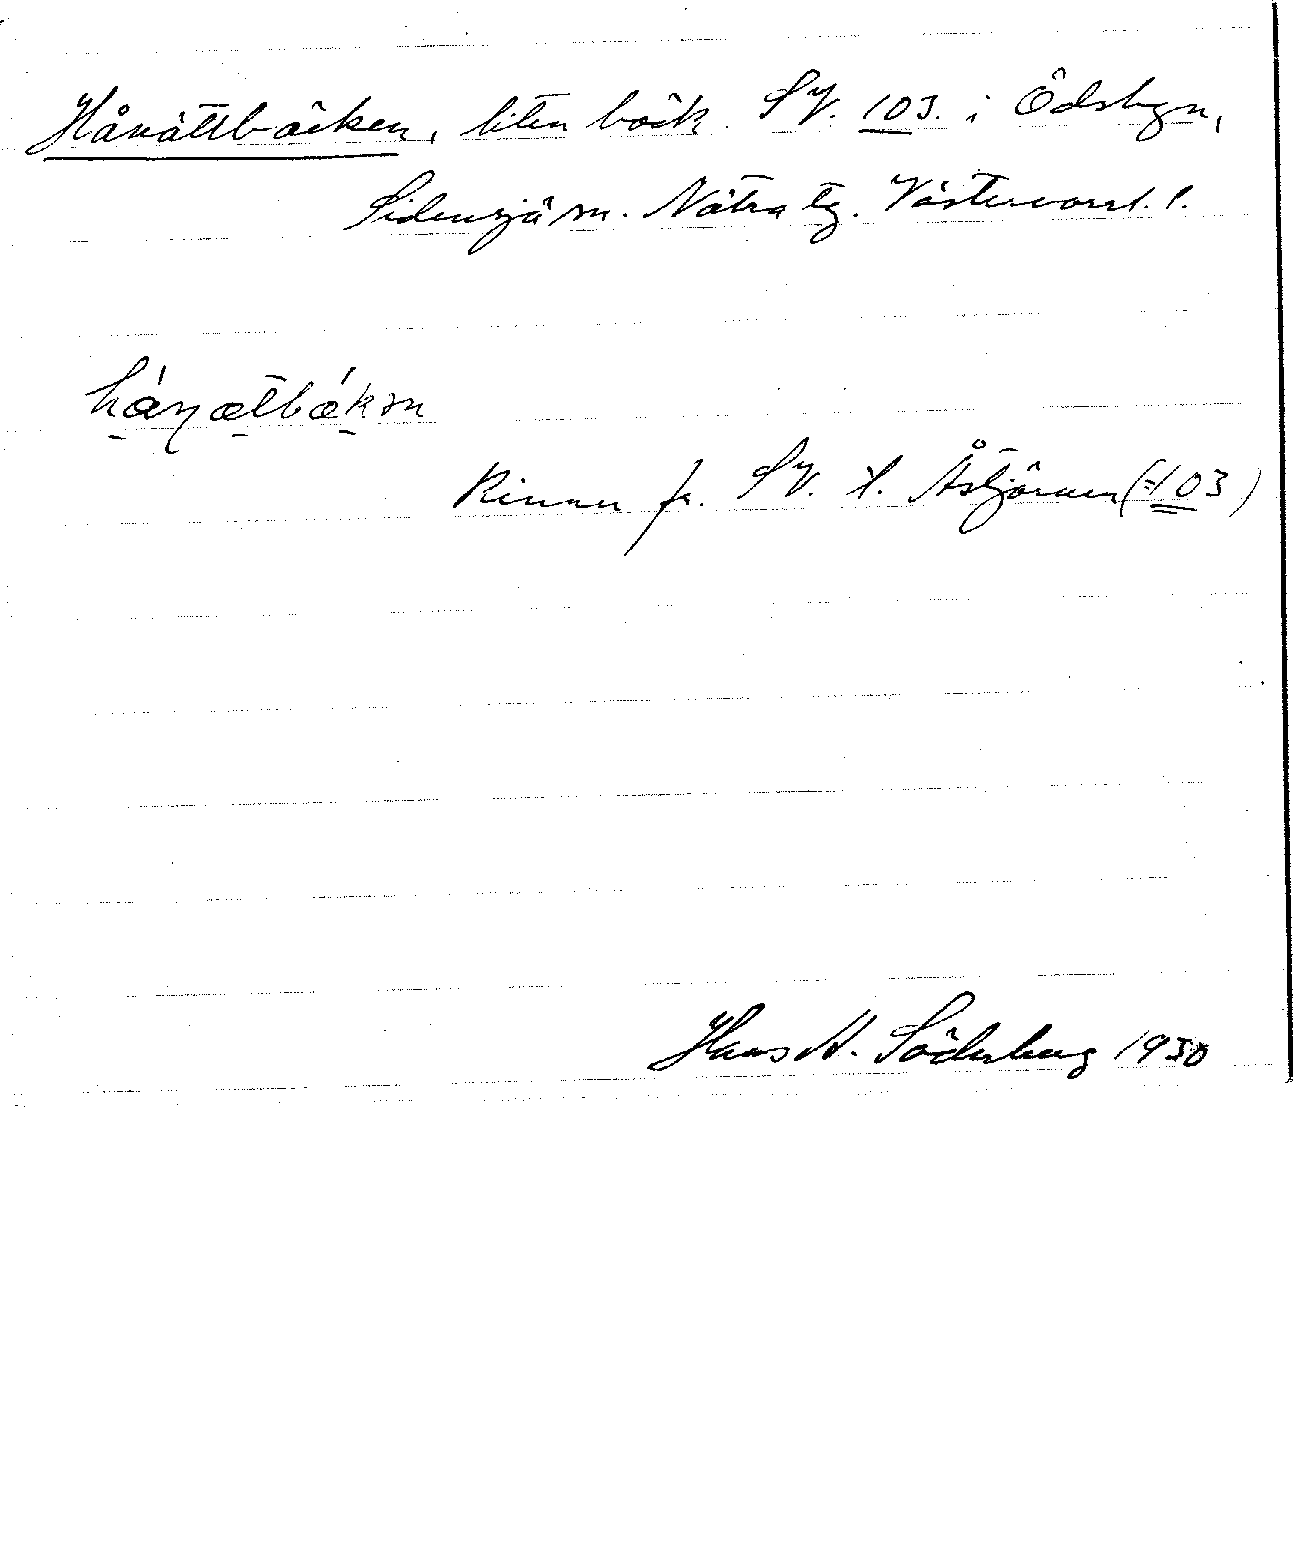 Hånättbäcken, liten bäck. SV. 103. i Ödsbyn,
Sidensjö sn. Nätra tg. Västernorrl. l.
hánætbækɳ
Rinner fr. SV. t. Åstjärnen (=103)
Hans A. Söderberg 1930